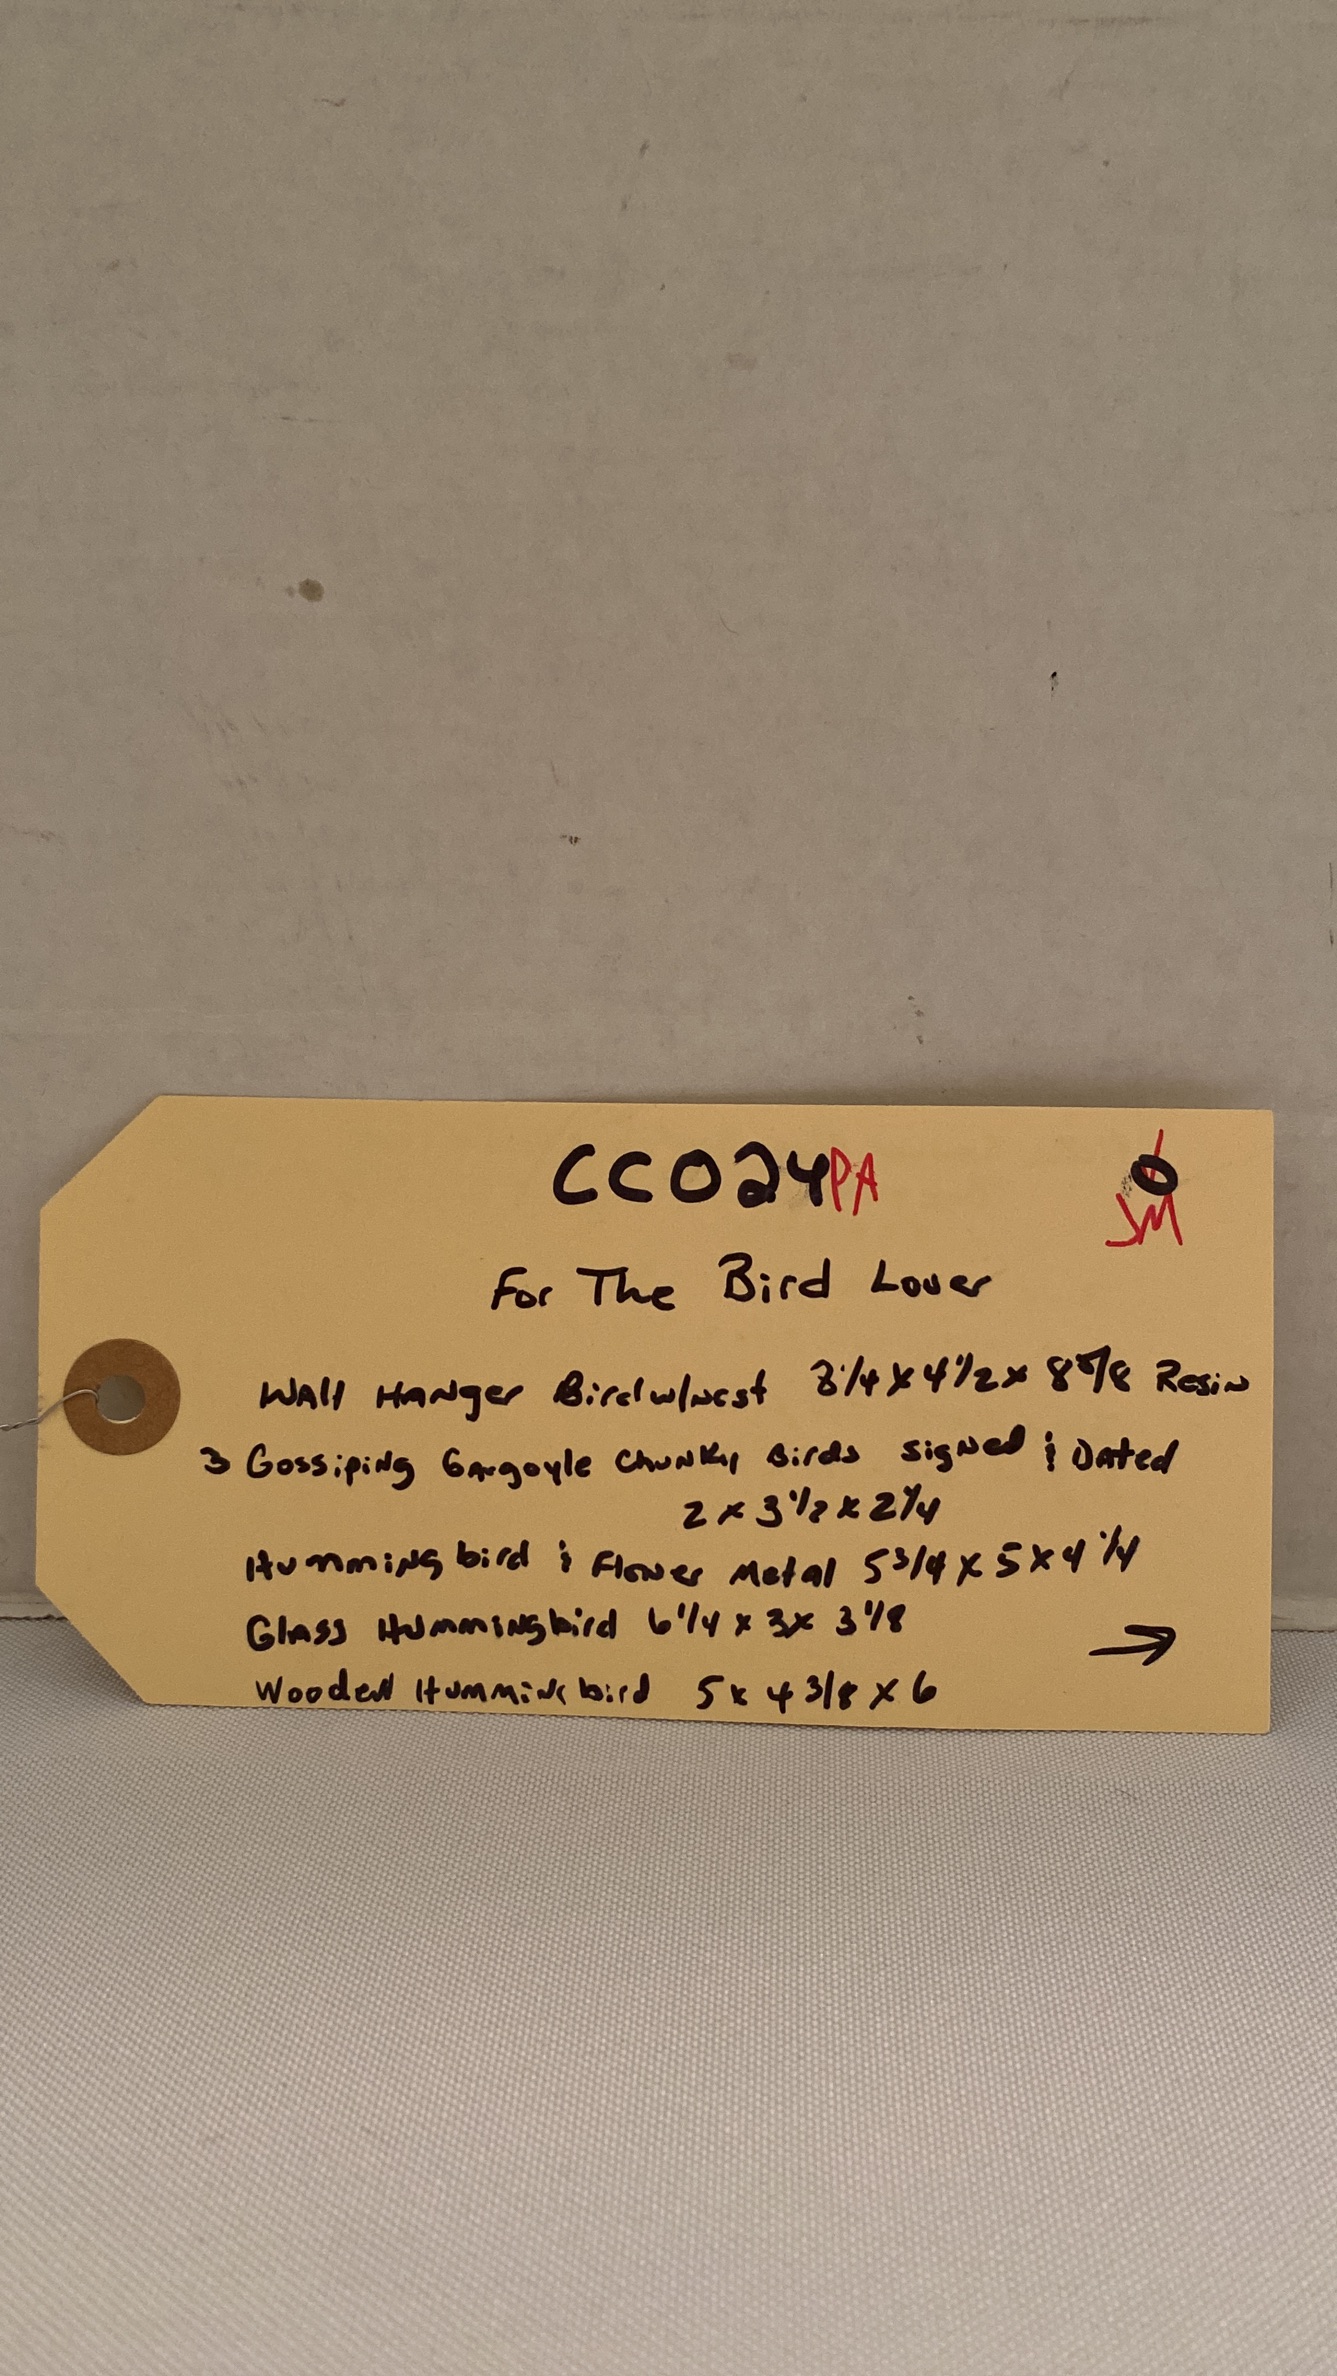 CC024PA
JM
For The Bird Lover
Wall Hanger Bird w/nest 3 1/4 x 4 1/2 x 8 5/8 Resin
3 Gossiping Gargoyle Chunky Birds signed & Dated
2 x 3 1/2 x 2 1/4
Hummingbird & Flower Metal 5 3/4 x 5 x 4 1/4
Glass Hummingbird 6 1/4 x 3 x 3 1/8
→
Wooden Hummingbird 5 x 4 3/8 x 6